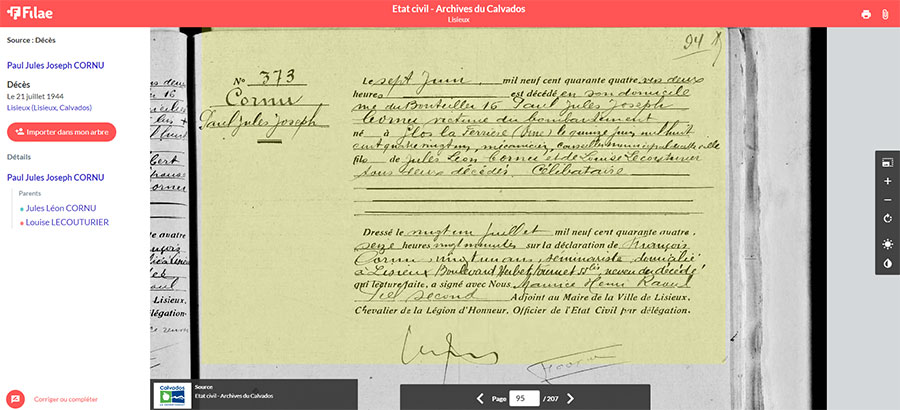 Filae
Etat civil - Archives du Calvados
Lisieux
Source : Décès
Paul Jules Joseph CORNU
Décès
Le 21 juillet 1944
Lisieux (Lisieux, Calvados)
Importer dans mon arbre
Détails
Paul Jules Joseph CORNU
Parents
Jules Léon CORNU
Louise LECOUTURIER
Corriger ou compléter
94
N° 373
Cornu
Paul Jules Joseph
Le sept Juin mil neuf cent quarante quatre, vers deux
heures est décédé en son domicile
rue du Bouteiller 16 Paul Jules Joseph
Cornu victime du bombardement
né à Glos la Ferrière (Orne) le quinze juin mil huit
cent quatre vingt un, mécanicien, conseiller municipal de cette ville
fils de Jules Léon Cornu et de Louise Lecouturier
tous deux décédés. Célibataire
Dressé le vingt un juillet mil neuf cent quarante quatre,
seize heures vingt minutes sur la déclaration de François
Cornu, vingt un ans, séminariste, domicilié
à Lisieux Boulevard Herbet Fournet neveu du décédé
qui lecture faite, a signé avec Nous, Maurice Henri Raoul
second Adjoint au Maire de la Ville de Lisieux,
Chevalier de la Légion d'Honneur, Officier de l'Etat Civil par délégation.
Calvados
Source
Etat civil - Archives du Calvados
Page 95 / 207